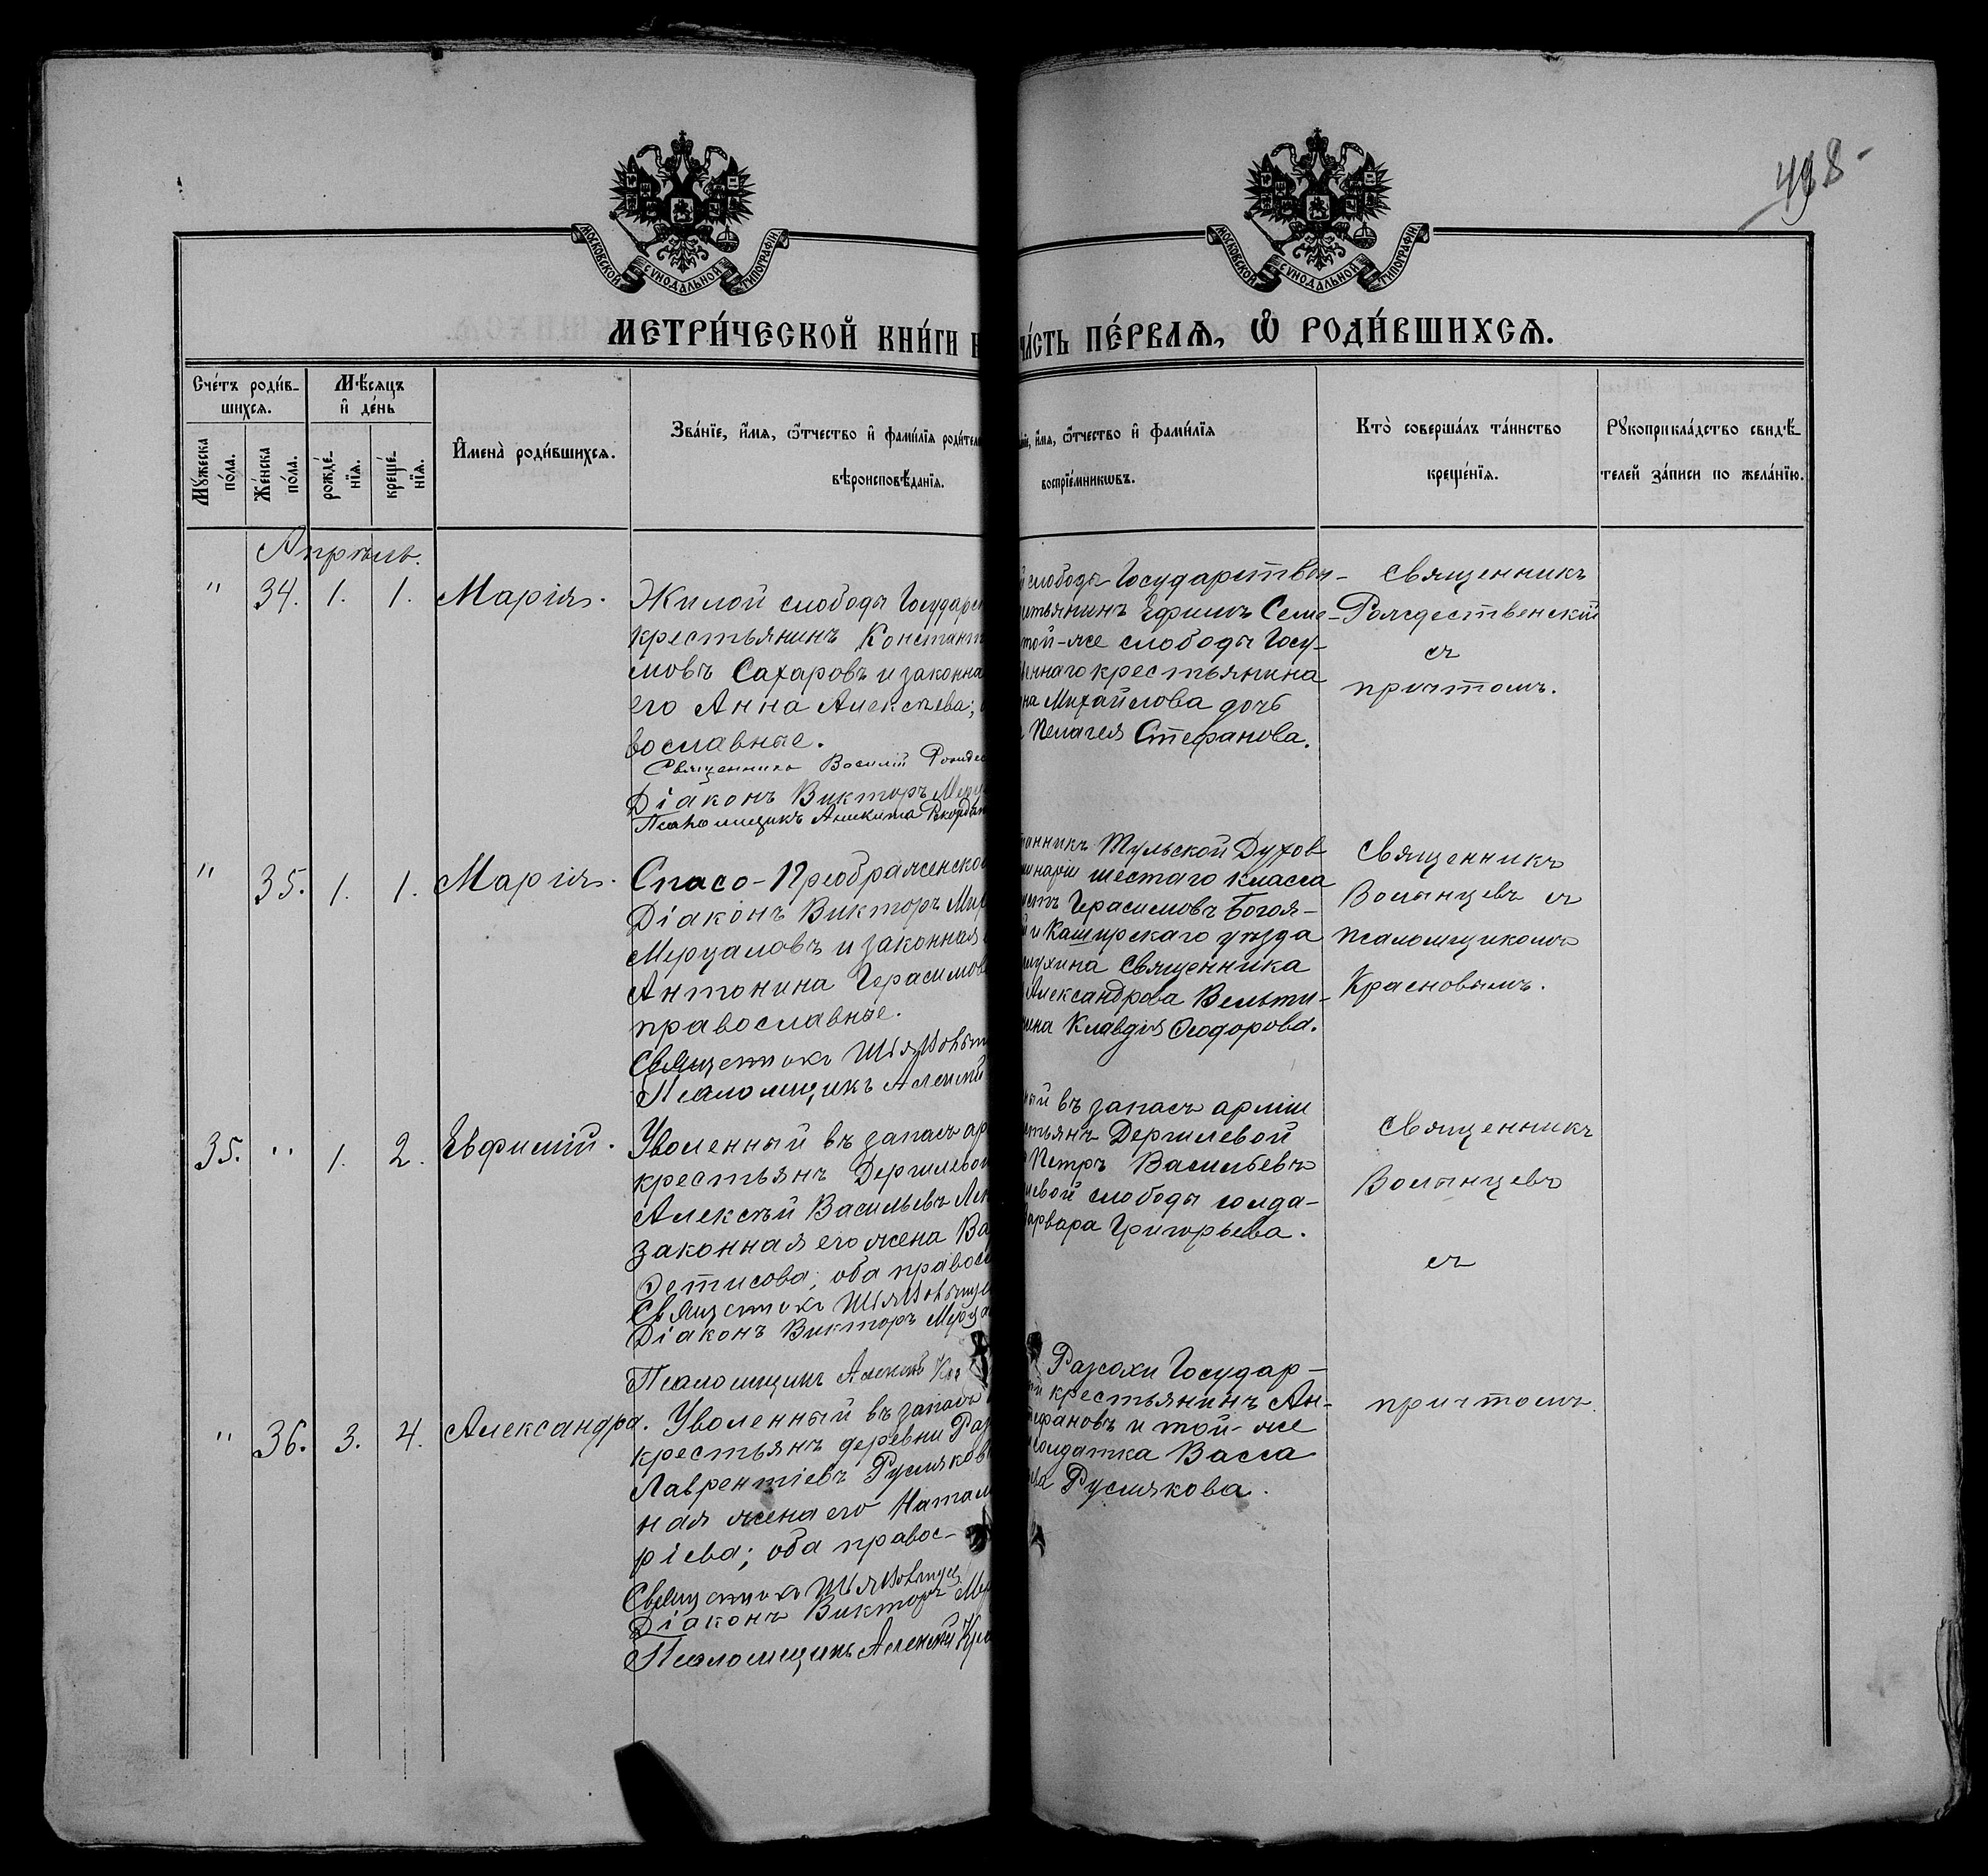 498
МОСКОВСКОЙ СѴНОДАЛЬНОЙ ТИПОГРАФІИ
МОСКОВСКОЙ СѴНОДАЛЬНОЙ ТИПОГРАФІИ
МЕТРИ́ЧЕСКОЙ КНИ́ГИ Н
ЧА́СТЬ ПЕ́РВАѦ, Ѽ РОДИ́ВШИХСѦ.
Сче́тъ роди́в-
шихсѧ.
Мꙋ́жеска по́ла.
Же́нска по́ла.
Мѣ́сѧцъ
и҆ де́нь
рожде́нїѧ.
креще́нїѧ.
И҆мена̀ роди́вшихсѧ.
Зва́нїе, и҆́мѧ, ѻ҆́тчество и҆ фами́лїѧ роди́тел
вѣроисповѣ́данїѧ.
нїе, и҆́мѧ, ѻ҆́тчество и҆ фами́лїѧ
воспрїе́мникѡвъ.
Кто̀ соверша́лъ та́инство
креще́нїѧ.
Рꙋкоприкла́дство свидѣ́-
телей за́писи по жела́нїю.
Апрѣль.
" 34. 1. 1. Марія.
Жилой слободы Государс
крестьянинъ Констант
мовъ Сахаровъ и законна
его Анна Алексѣева;
вославные.
Священникъ Василій Рождес
Діаконъ Викторъ Мерц
Псаломщикъ
й слободы Государствен-
стьянинъ Ефимъ Семе-
той-же слободы Госу-
еннаго крестьянина
на Михайлова дочь
Пелагея Стефанова.
Священникъ
Рождественскій
съ
причтомъ.
" 35. 1. 1. Марія.
Спасо-Преображенской
Діаконъ Викторъ Мих
Мерцаловъ и законная
Антонина Герасимов
православные.
Священникъ Волын
Псаломщикъ Алексѣй
танникъ Тульской Духов-
минаріи шестаго класса
Герасимовъ Богоя-
й и Каширскаго уѣзда
мухина Священника
Александрова Вельти-
жена Клавдія Ѳеодорова.
Священникъ
Волынцевъ съ
псаломщикомъ
Красновымъ.
35. " 1. 2. Евфимій.
Уволенный въ запасъ ар
крестьянъ Дергилевой
Алексѣй Васильевъ
законная его жена Ва
Ѳетисова; оба правосл
Священникъ Волынце
Діаконъ Викторъ Мерца
Псаломщикъ Алексѣй Кра
ный въ запасъ арміи
стьянъ Дергилевой
Петръ Васильевъ
левой слободы солда-
Варвара Григорьева.
Священникъ
Волынцевъ
съ
причтомъ.
" 36. 3. 4. Александра.
Уволенный въ запасъ
крестьянъ деревни Раз
Лаврентіевъ Русляков
ная жена его Натал
ріева; оба правос-
Священникъ Волынцев
Діаконъ Викторъ Мер
Псаломщикъ Алексѣй Кра
Разсохи Государ-
й крестьянинъ Ан-
тефановъ и той-же
солдатка Васса
ва Руслякова.